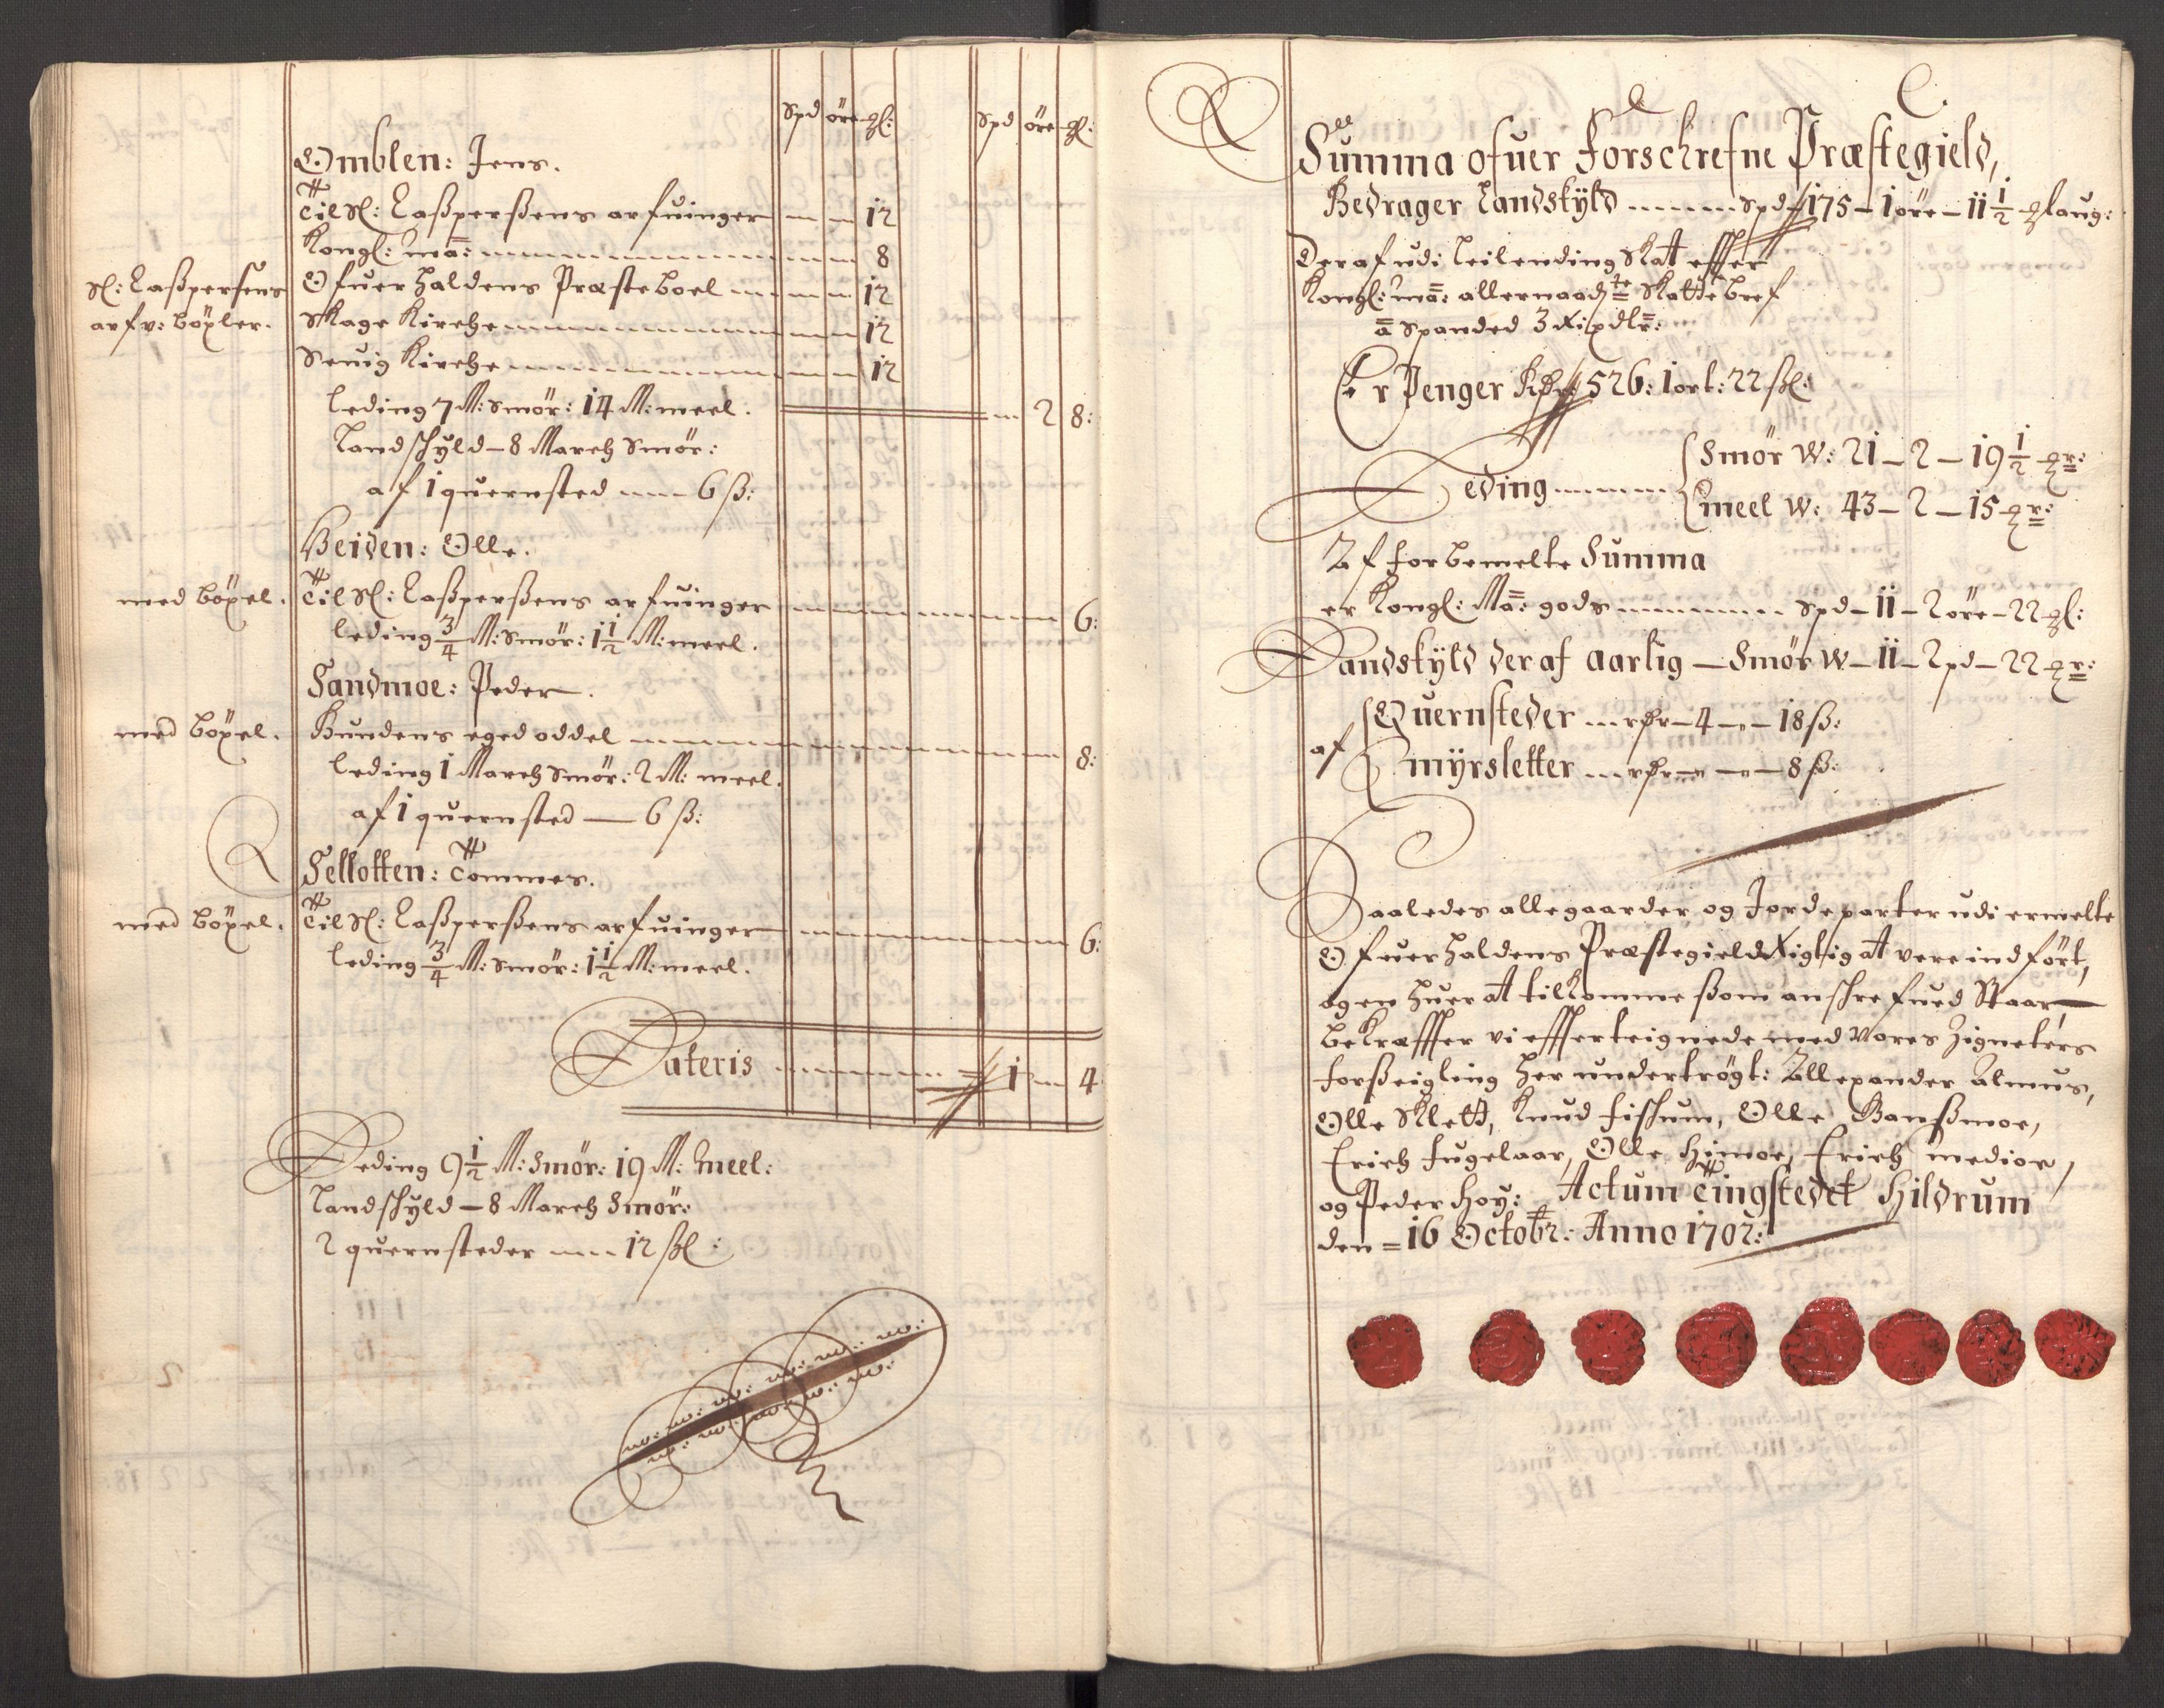 Spd öre gl: Spd öre gl:
Omblen: Jens.
Til Sl: Casperßens arfuinger 12
Kongl: Ma: 8
Sl: Casperßens Ofuerhaldens Præsteboel 12
arfv: böxler. Skage Kirche 12
Seuig Kirche 12
leding 7 M: Smör: 14 M: meel. 2 8:
Landschyld - 8 March Smör:
af 1 quernsted 6 ß:
Beiden: Olle.
med böxel. Til Sl: Casperßens arfuinger 6:
leding 3/4 M: Smör: 1 1/2 M: meel.
Sandmoe: Peder.
med böxel. Bundens eged oddel 8:
leding 1 March Smör: 2 M: meel.
af 1 quernsted 6 ß:
Sellotten: Tommes.
med böxel. Til Sl: Casperßens arfuinger 6:
leding 3/4 M: Smör: 1 1/2 M: meel.
Lateris 1 4
Leding 9 1/2 M: Smör: 19 M: meel:
Landschyld - 8 March Smör:
2 quernsteder 12 ßl:
Summa ofuer forschrefne Præstegield,
Bedrager Landskyld Spd 175 - 1 öre - 11 1/2 glaug:
Deraf udi Leilending Skat effter
Kongl: Ma: allernaadigste Skatte bref
a Spanded 3 Rixdlr:
Er Penger Rdr 526: 1 ort: 22 ßl:
Leding Smör W: 21 - 2 - 19 1/2 gr:
meel W: 43 - 2 - 15 gr:
Af forbemelte Summa
er Kongl: Ma: gods Spd - 11 - 2 öre - 22 gl:
Landskyld deraf aarlig - Smör W - 11 - 2 pd - 22 gr:
af Quernsteder rdr - 4 - " - 18 ß:
myrsletter rdr - " - " - 8 ß:
Saaledes alle gaarder og Jordeparter udi ermelte
Ofuerhaldens Præstegield Rigtig at vere indfört,
og en huer at tilkomme ßom anschrefued Staar,
bekræffter vi effterteignede med vores Zigneters
forßeigling her undertrögt: Allexander Almus,
Olle Klett, Knud fischum, Olle Ganßmoe,
Erich fugelaar, Olle Himoe, Erich medior,
og Peder Hoy: Actum Tingstedet Hildrum
den 16 Octobr: Anno 1702: